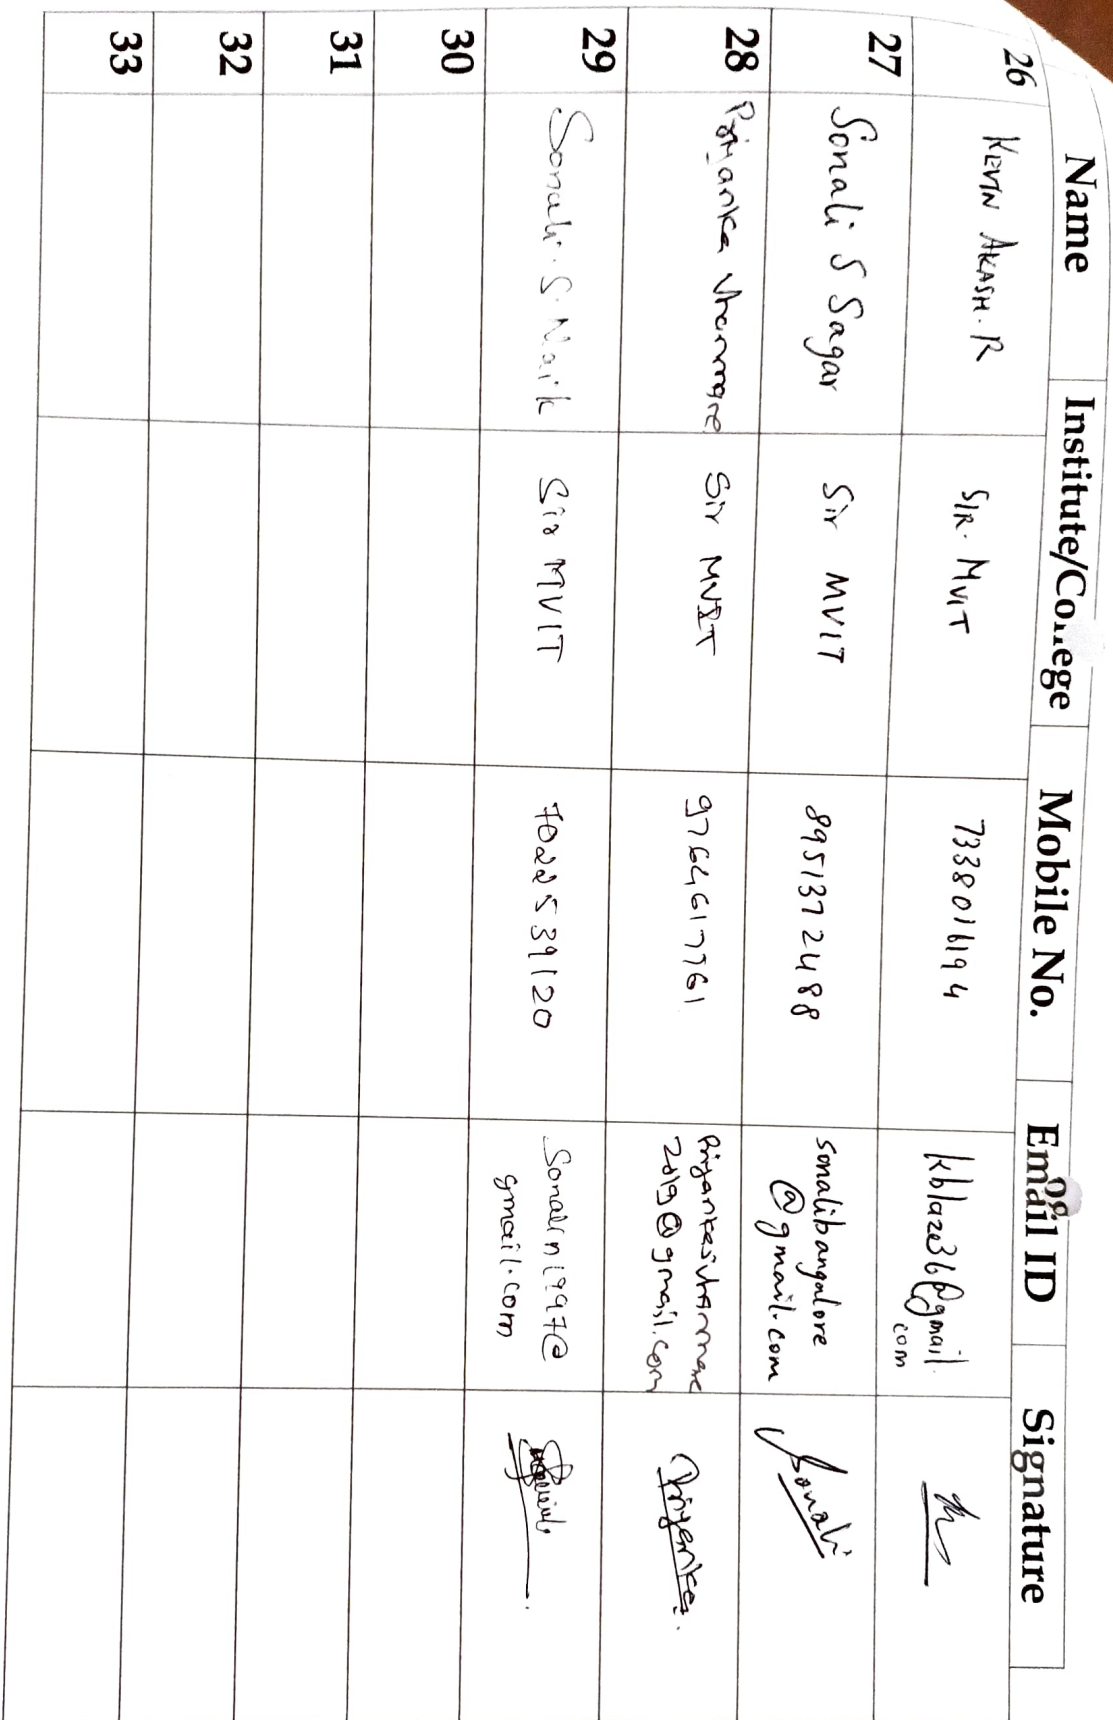 Name Institute/College Mobile No. Email ID Signature
26 KEVIN AKASH. R SIR. MVIT 7338016194 kblaze36@gmail.
com
27 Sonali S Sagar Sir MVIT 8951372488 sonalibangalore Sonali
@gmail.com
28 Priyanka Vhanmane Sir MVIT 9764617761 Priyankasvhanmane Priyanka.
2019@gmail.com
29 Sonali. S. Naik Sir MVIT 7022539120
gmail.com
30
31
32
33